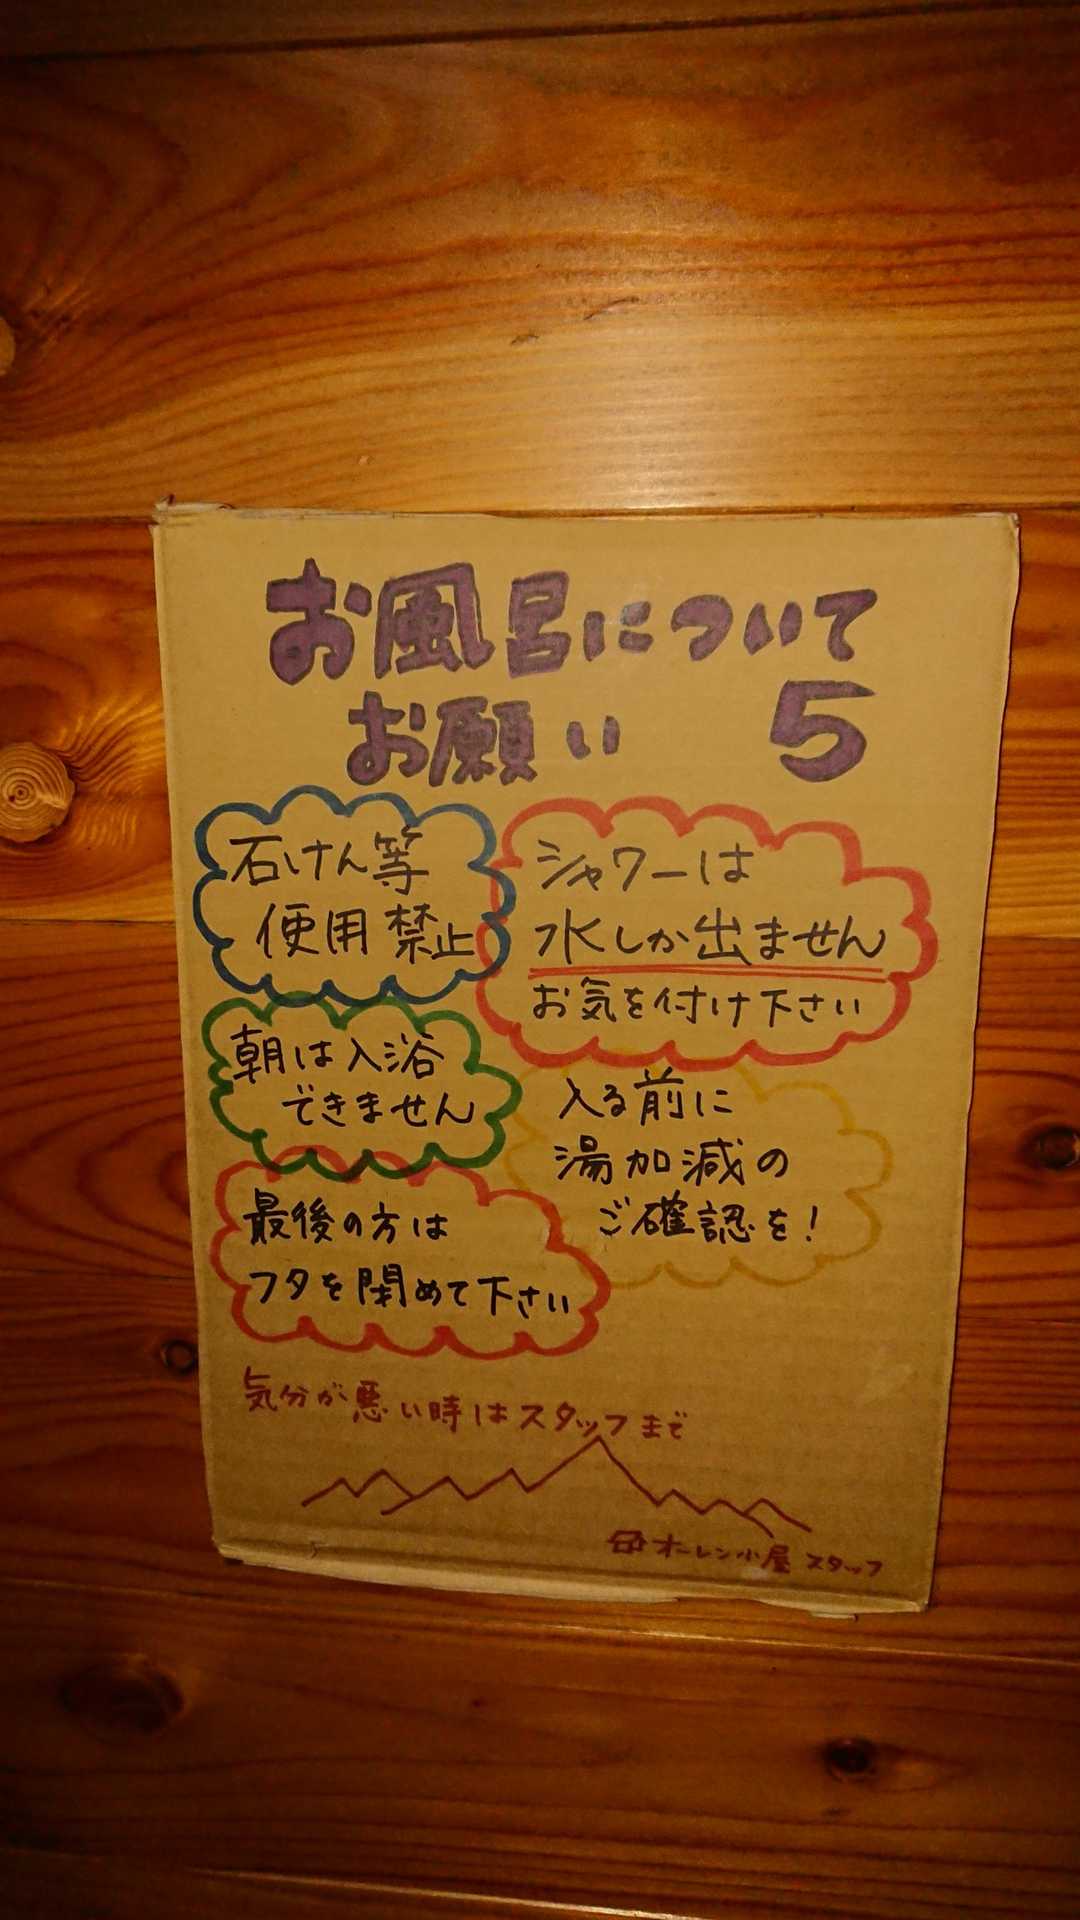 お風呂について
お願い 5
石けん等
使用禁止
シャワーは
水しか出ません
お気を付け下さい
朝は入浴
できません
入る前に
湯加減の
ご確認を!
最後の方は
フタを閉めて下さい
気分が悪い時はスタッフまで
オーレン小屋 スタッフ